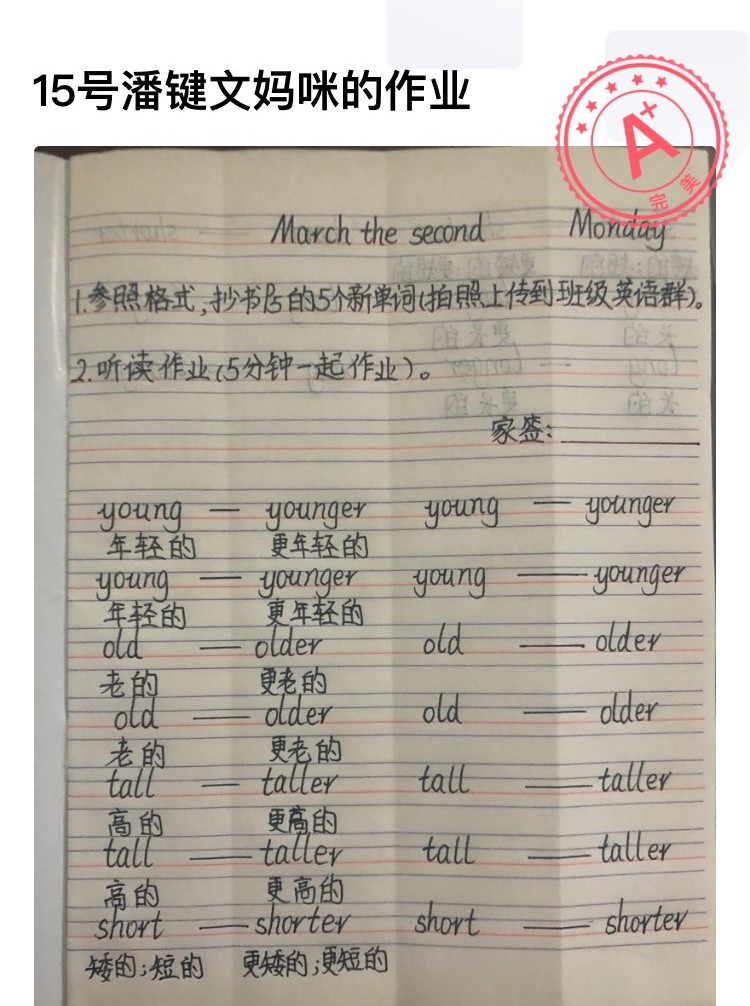 15号潘键文妈咪的作业
A+
完美
March the second Monday
1.参照格式,抄书P5的5个新单词(拍照上传到班级英语群)。
2.听读作业(5分钟一起作业)。
家签:
young — younger young — younger
年轻的 更年轻的
young — younger young — younger
年轻的 更年轻的
old — older old — older
老的 更老的
old — older old — older
老的 更老的
tall — taller tall — taller
高的 更高的
tall — taller tall — taller
高的 更高的
short — shorter short — shorter
矮的;短的 更矮的;更短的